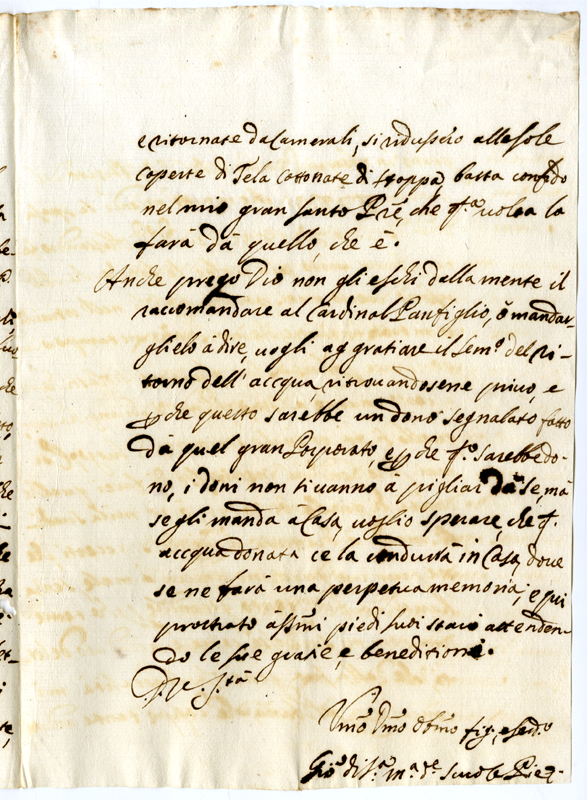 e ritornate da Camerali, si ridussero alle sole
coperte di Tela cottonate di stoppa, basta confido
nel mio gran santo Prē, che q.ta volta la
farà dà quello, che è.
Anche prego Dio non gli eschi dalla mente il
raccomandare al Cardinal Panfiglio, ò mandar-
glielo à dire, vogli aggratiare il Sem.o del ri-
torno dell' accqua, ritrovandosene privo, e
che questo sarebbe un dono segnalato fatto
dà quel gran Porporato, e che q.o sarebbe do-
no, i doni non si vanno à pigliar dà se, mà
se gli manda à Casa, voglio sperare, che q.
accqua donata ce la condurrà in Casa, dove
se ne farà una perpetua memoria; e qui
prostrato à ss.mi piedi suoi starò attenden-
do le sue gratie, e beneditioni.
D. V. S.tà
fig. e ser.o
Gio: di